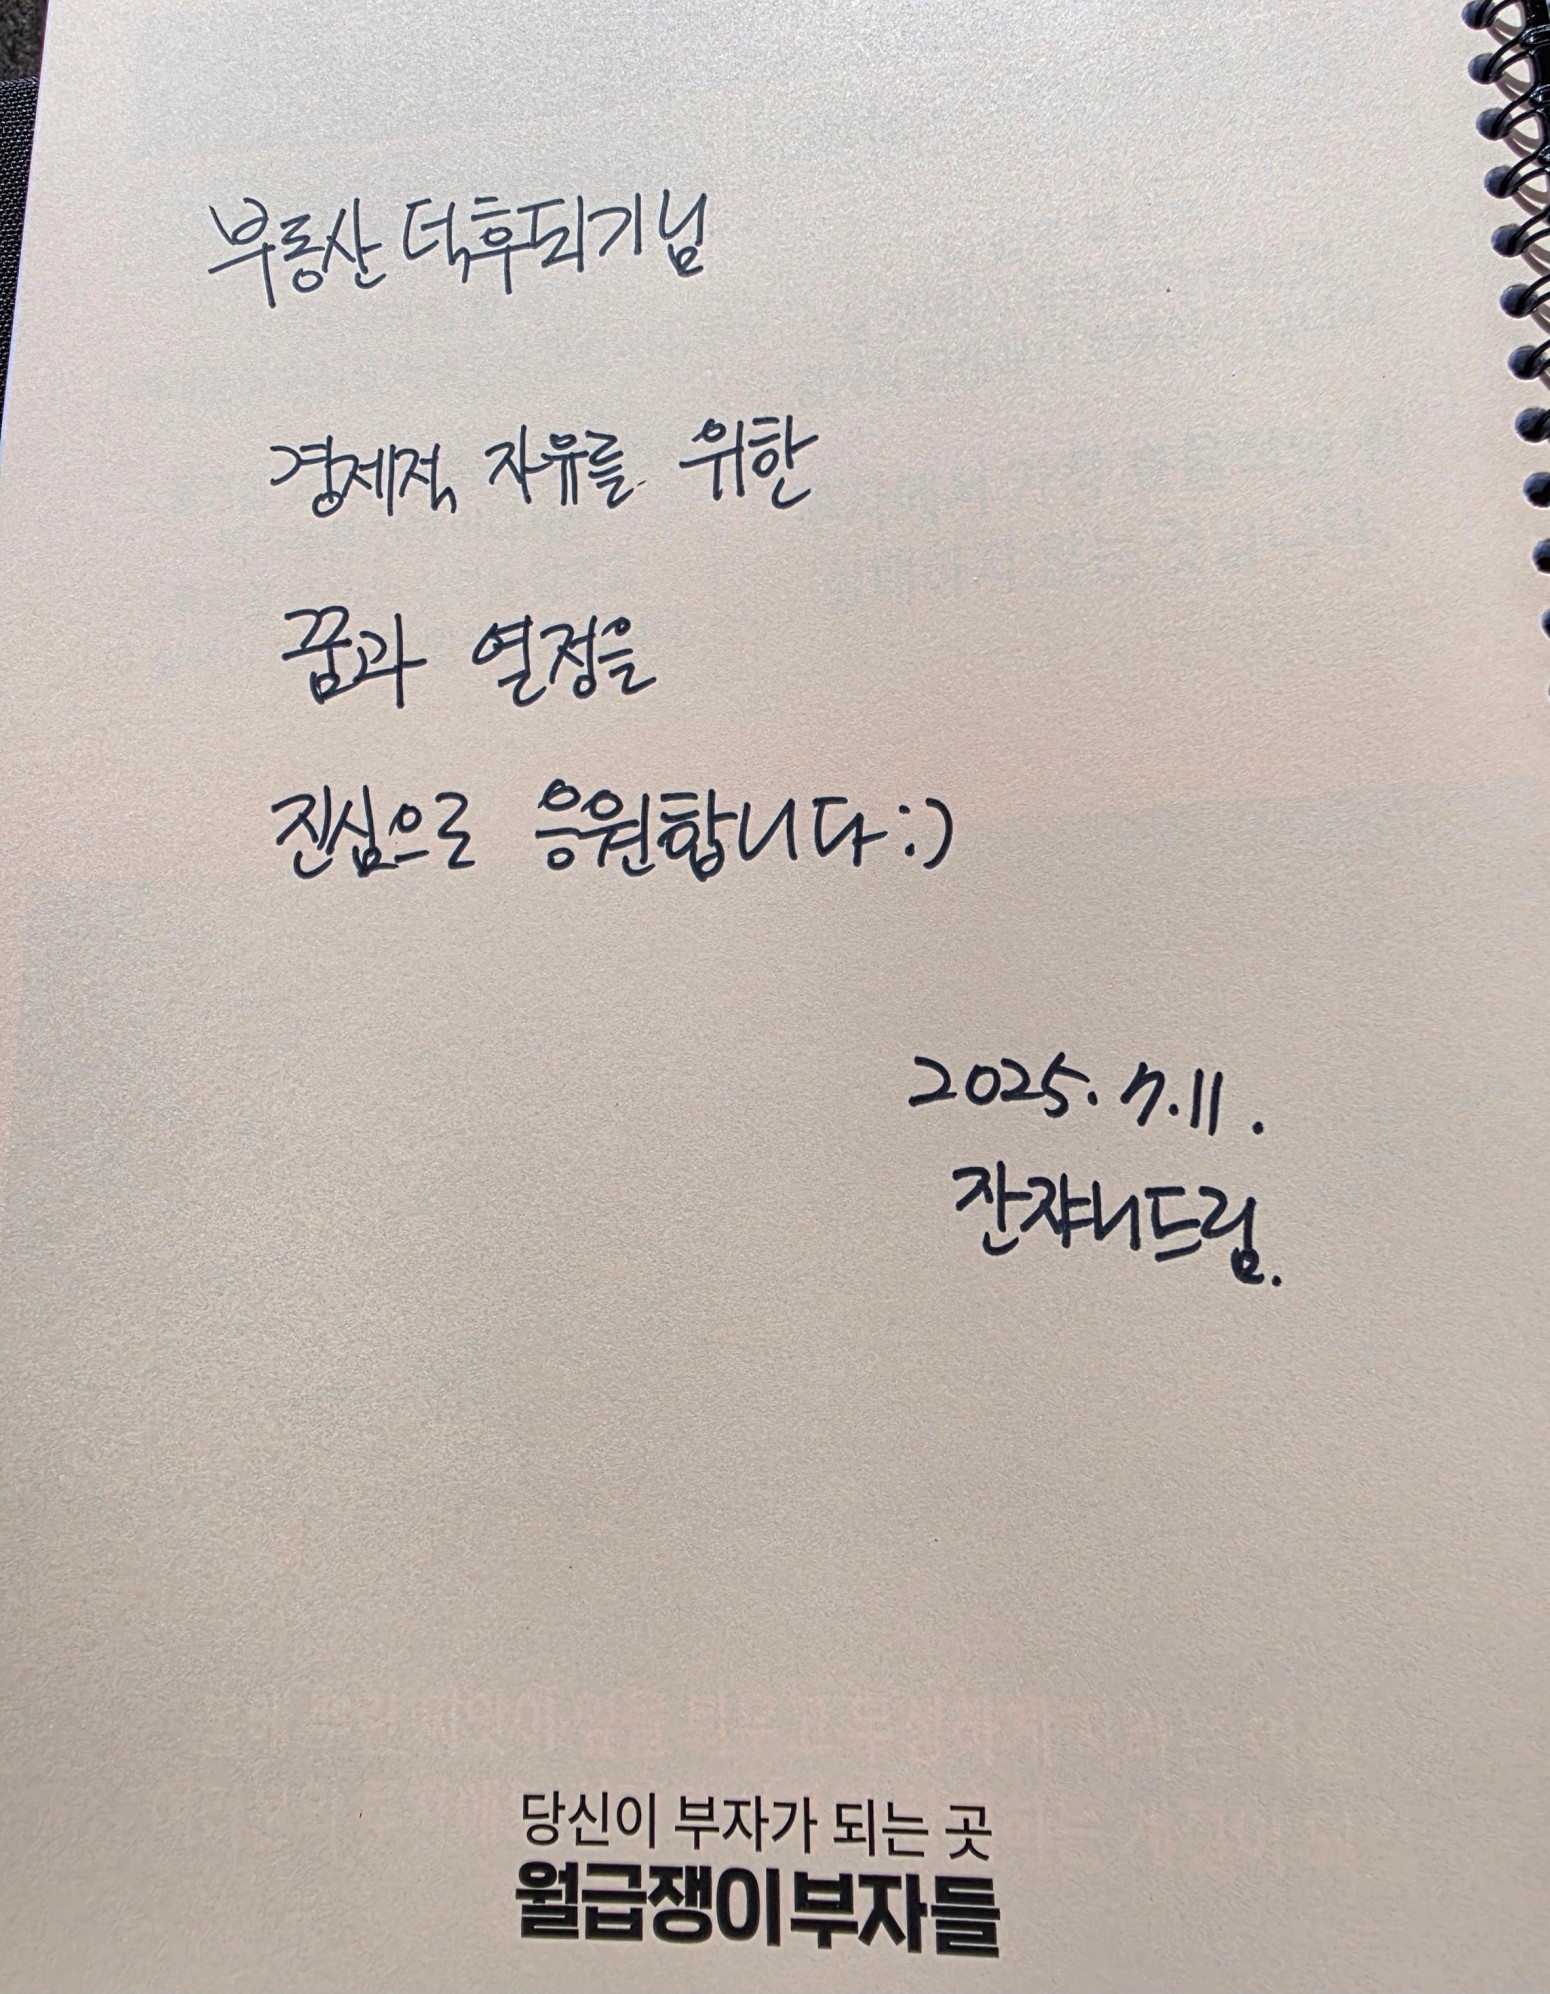 부동산 덕후되기님
경제적 자유를 위한
꿈과 열정을
진심으로 응원합니다:)
2025. 7.11.
잔쟈니드림.
당신이 부자가 되는 곳
월급쟁이부자들